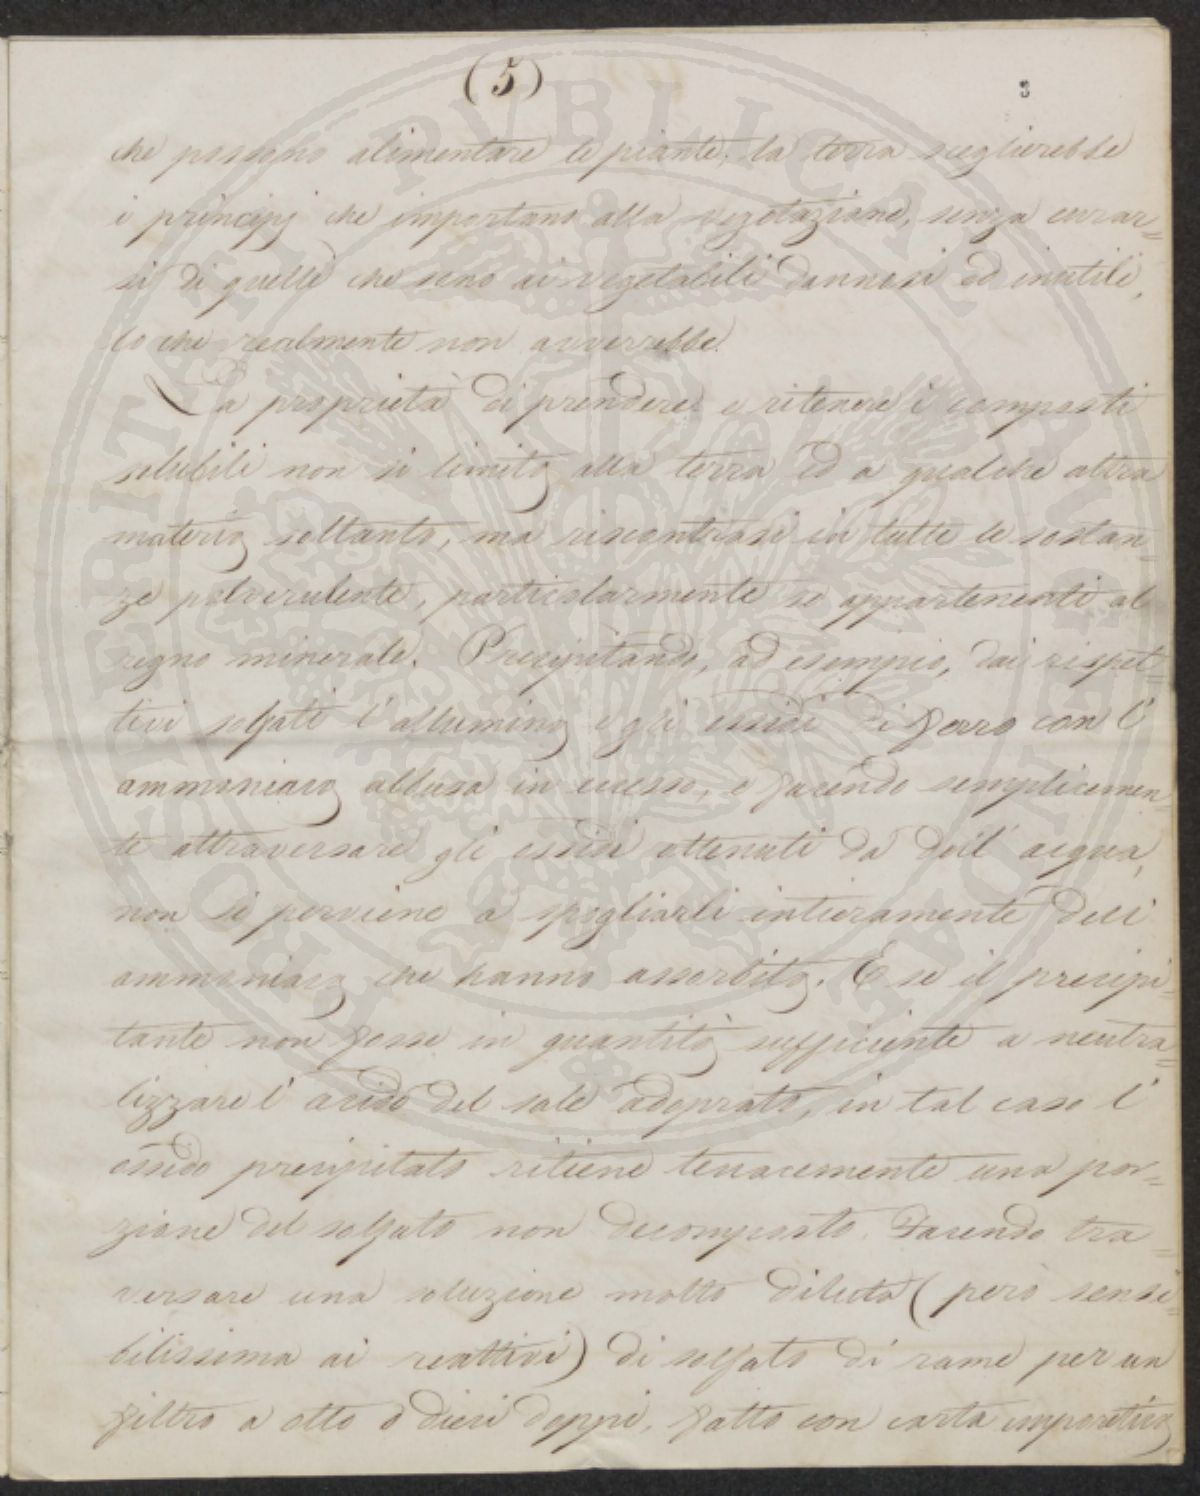 (5)
3
che possono alimentare le piante, la terra sceglierebbe
i principj che importano alla vegetazione, senza curar=
si di quelli che sono ai vegetabili dannosi ed inutili,
lo che realmente non avverrebbe.
La proprietà di prendere e ritenere i composti
solubili non si limita alla terra ed a qualche altra
materia soltanto, ma riscontrasi in tutte le sostan=
ze polverulente, particolarmente se appartenenti al
regno minerale. Precipitando, ad esempio, dai rispet=
tivi solfati l'allumina e gli ossidi di ferro con l'
ammoniaca allusa in eccesso, e facendo semplicemen=
te attraversare gli ossidi ottenuti da dell'acqua,
non si perviene a spogliarli intieramente dell'
ammoniaca che hanno assorbita. E se il precipi=
tante non fosse in quantità sufficiente a neutra=
lizzare l'acido del sale adoprato, in tal caso l'
ossido precipitato ritiene tenacemente una por=
zione del solfato non decomposto. Facendo tra=
versare una soluzione molto diluta (però sensi=
bilissima ai reattivi) di solfato di rame per un
filtro a otto o dieci doppi, fatto con carta emporetica
PUBLICAE
PROSPERITATI
AUGENDAE